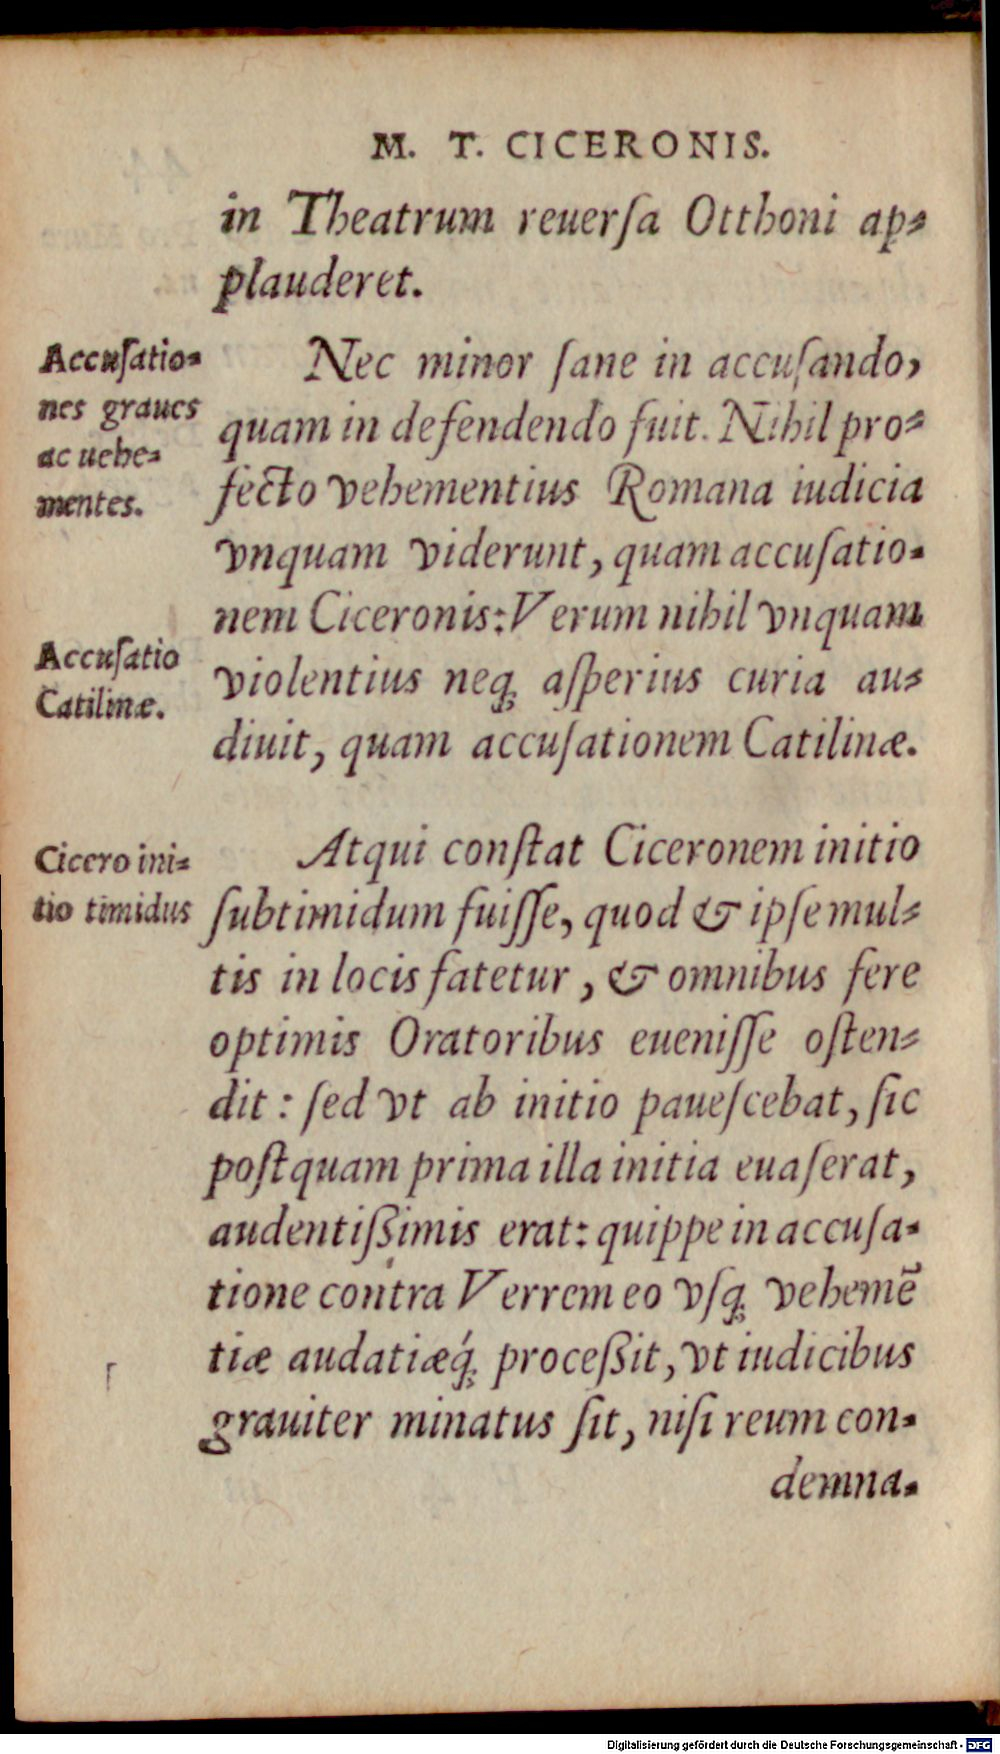 M. T. CICERONIS.
in Theatrum reuerſa Otthoni ap⸗
plauderet.
Accuſatio⸗
nes graues
ac uehe⸗
mentes.
Nec minor ſane in accuſando,
quam in defendendo fuit. Nihil pro⸗
fecto vehementius Romana iudicia
vnquam viderunt, quam accuſatio⸗
nem Ciceronis: Verum nihil vnquam
Accuſatio
Catilinæ.
violentius neq́; aſperius curia au⸗
diuit, quam accuſationem Catilinæ.
Cicero ini⸗
tio timidus
Atqui conſtat Ciceronem initio
ſubtimidum fuiſſe, quod & ipſe mul⸗
tis in locis fatetur, & omnibus fere
optimis Oratoribus eueniſſe oſten⸗
dit: ſed vt ab initio paueſcebat, ſic
poſtquam prima illa initia euaſerat,
audentiſsimis erat: quippe in accuſa⸗
tione contra Verrem eo vſq; vehemē
tiæ audatiæq́; proceſsit, vt iudicibus
grauiter minatus ſit, niſi reum con⸗
demna⸗
Digitalisierung gefördert durch die Deutsche Forschungsgemeinschaft - DFG